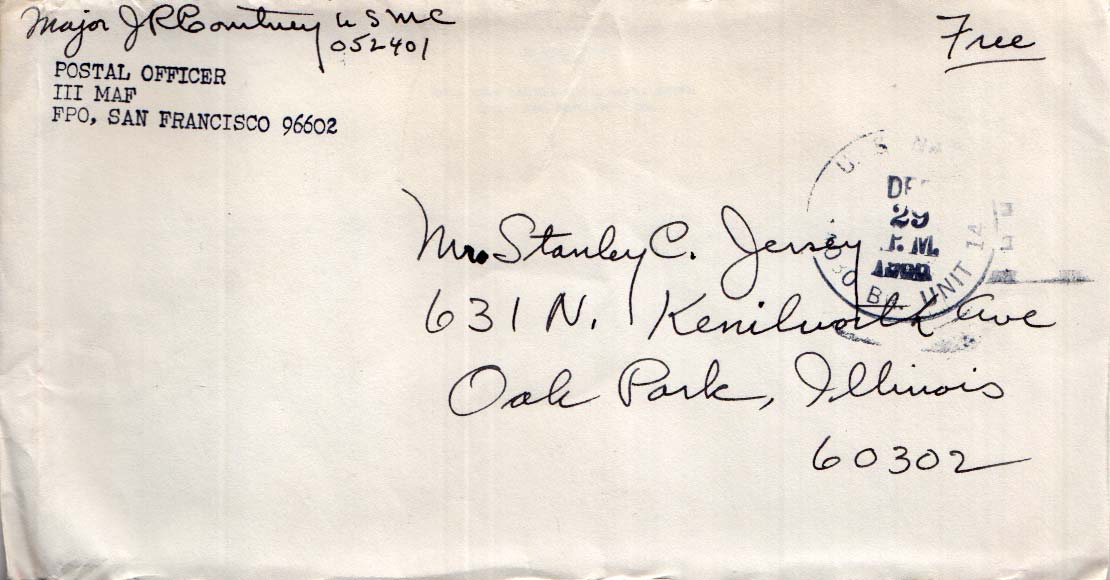 Major J R Courtney USMC
052401
Free
POSTAL OFFICER
III MAF
FPO, SAN FRANCISCO 96602
U. S. NA
DE
29
.M.
Mr. Stanley C. Jersey
BR. UNIT 14
631 N. Kenilworth Ave
Oak Park, Illinois
60302